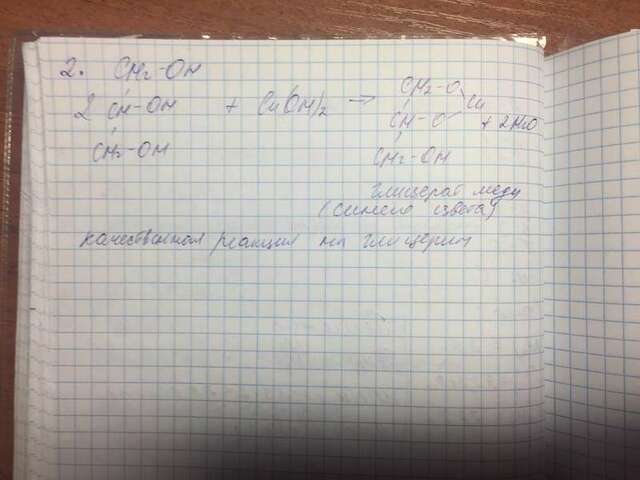 2. CH2-OH
2 CH-OH + Cu(OH)2 → CH2-O
CH-O Cu + 2H2O
CH2-OH CH2-OH
глицерат меди
(синего цвета)
качественная реакция на глицерин